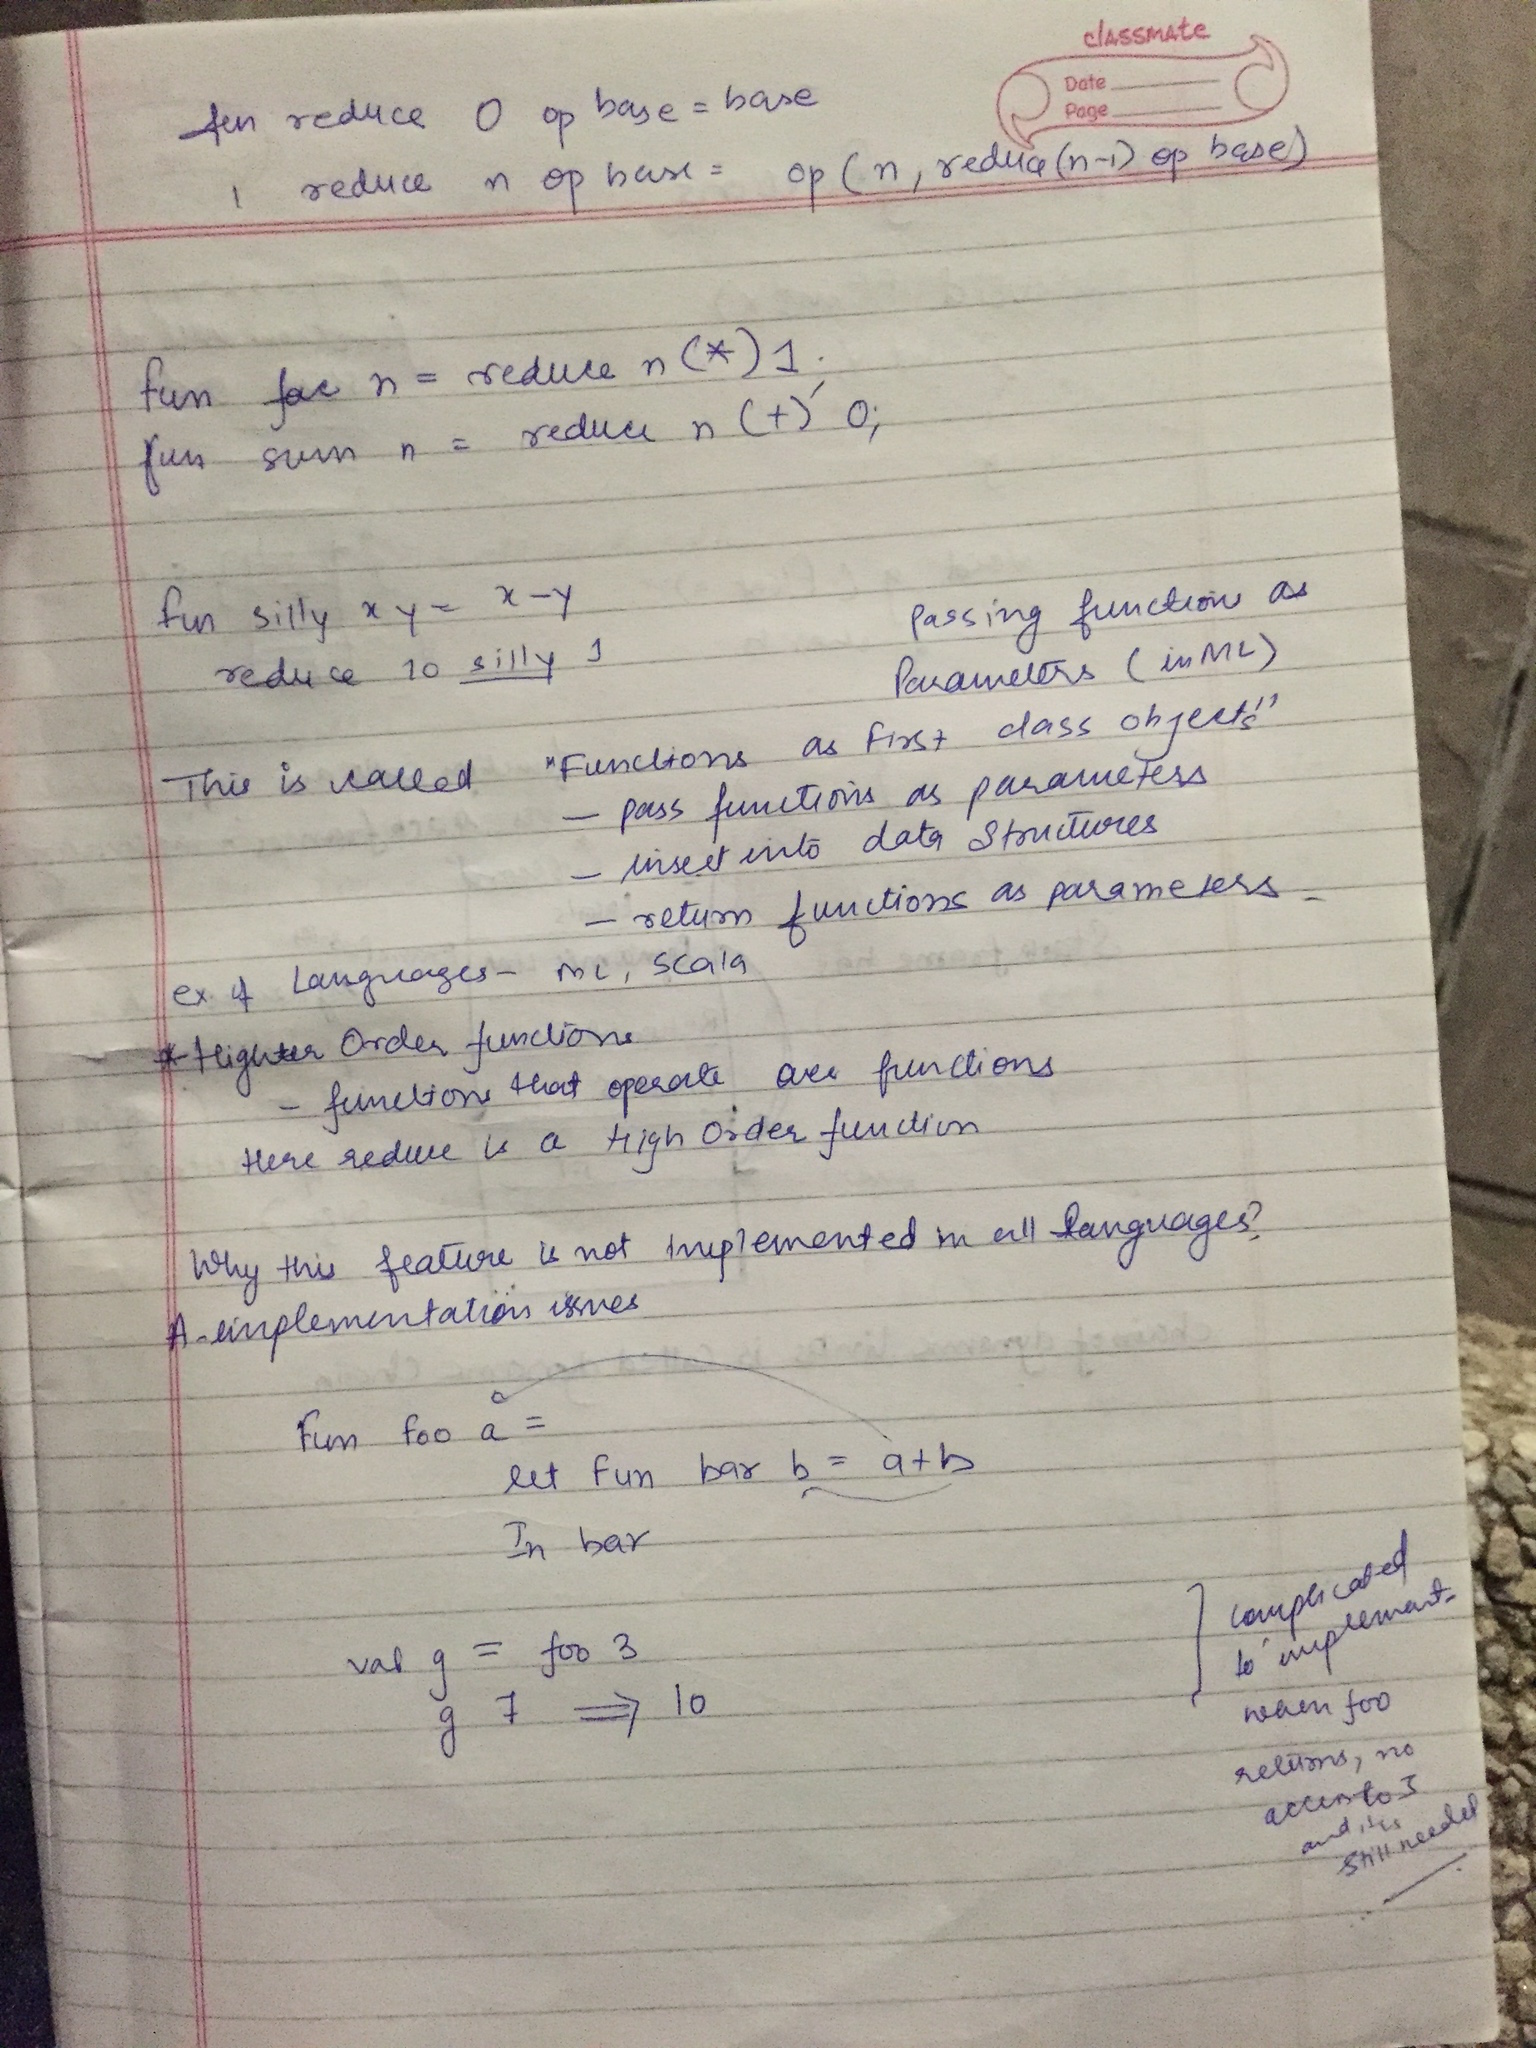 classmate
Date
Page
fun reduce 0 op base = base
| reduce n op base = op (n, reduce (n-1) op base)
fun fac n = reduce n (*) 1;
fun sum n = reduce n (+) 0;
fun silly x y = x-y
reduce 10 silly 1
Passing function as
Parameters (in ML)
This is called "Functions as First class objects"
- pass functions as parameters
- insert into data structures
- return functions as parameters -
ex of Languages - ML, Scala
* Higher Order functions
- functions that operate over functions
Here reduce is a High Order function
Why this feature is not implemented in all languages?
A - implementation issues
Fun foo a =
let fun bar b = a+b
In bar
val g = foo 3
g 7 ⟹ 10
complicated
to implement
when foo
returns, no
access to 3
and it is
still needed